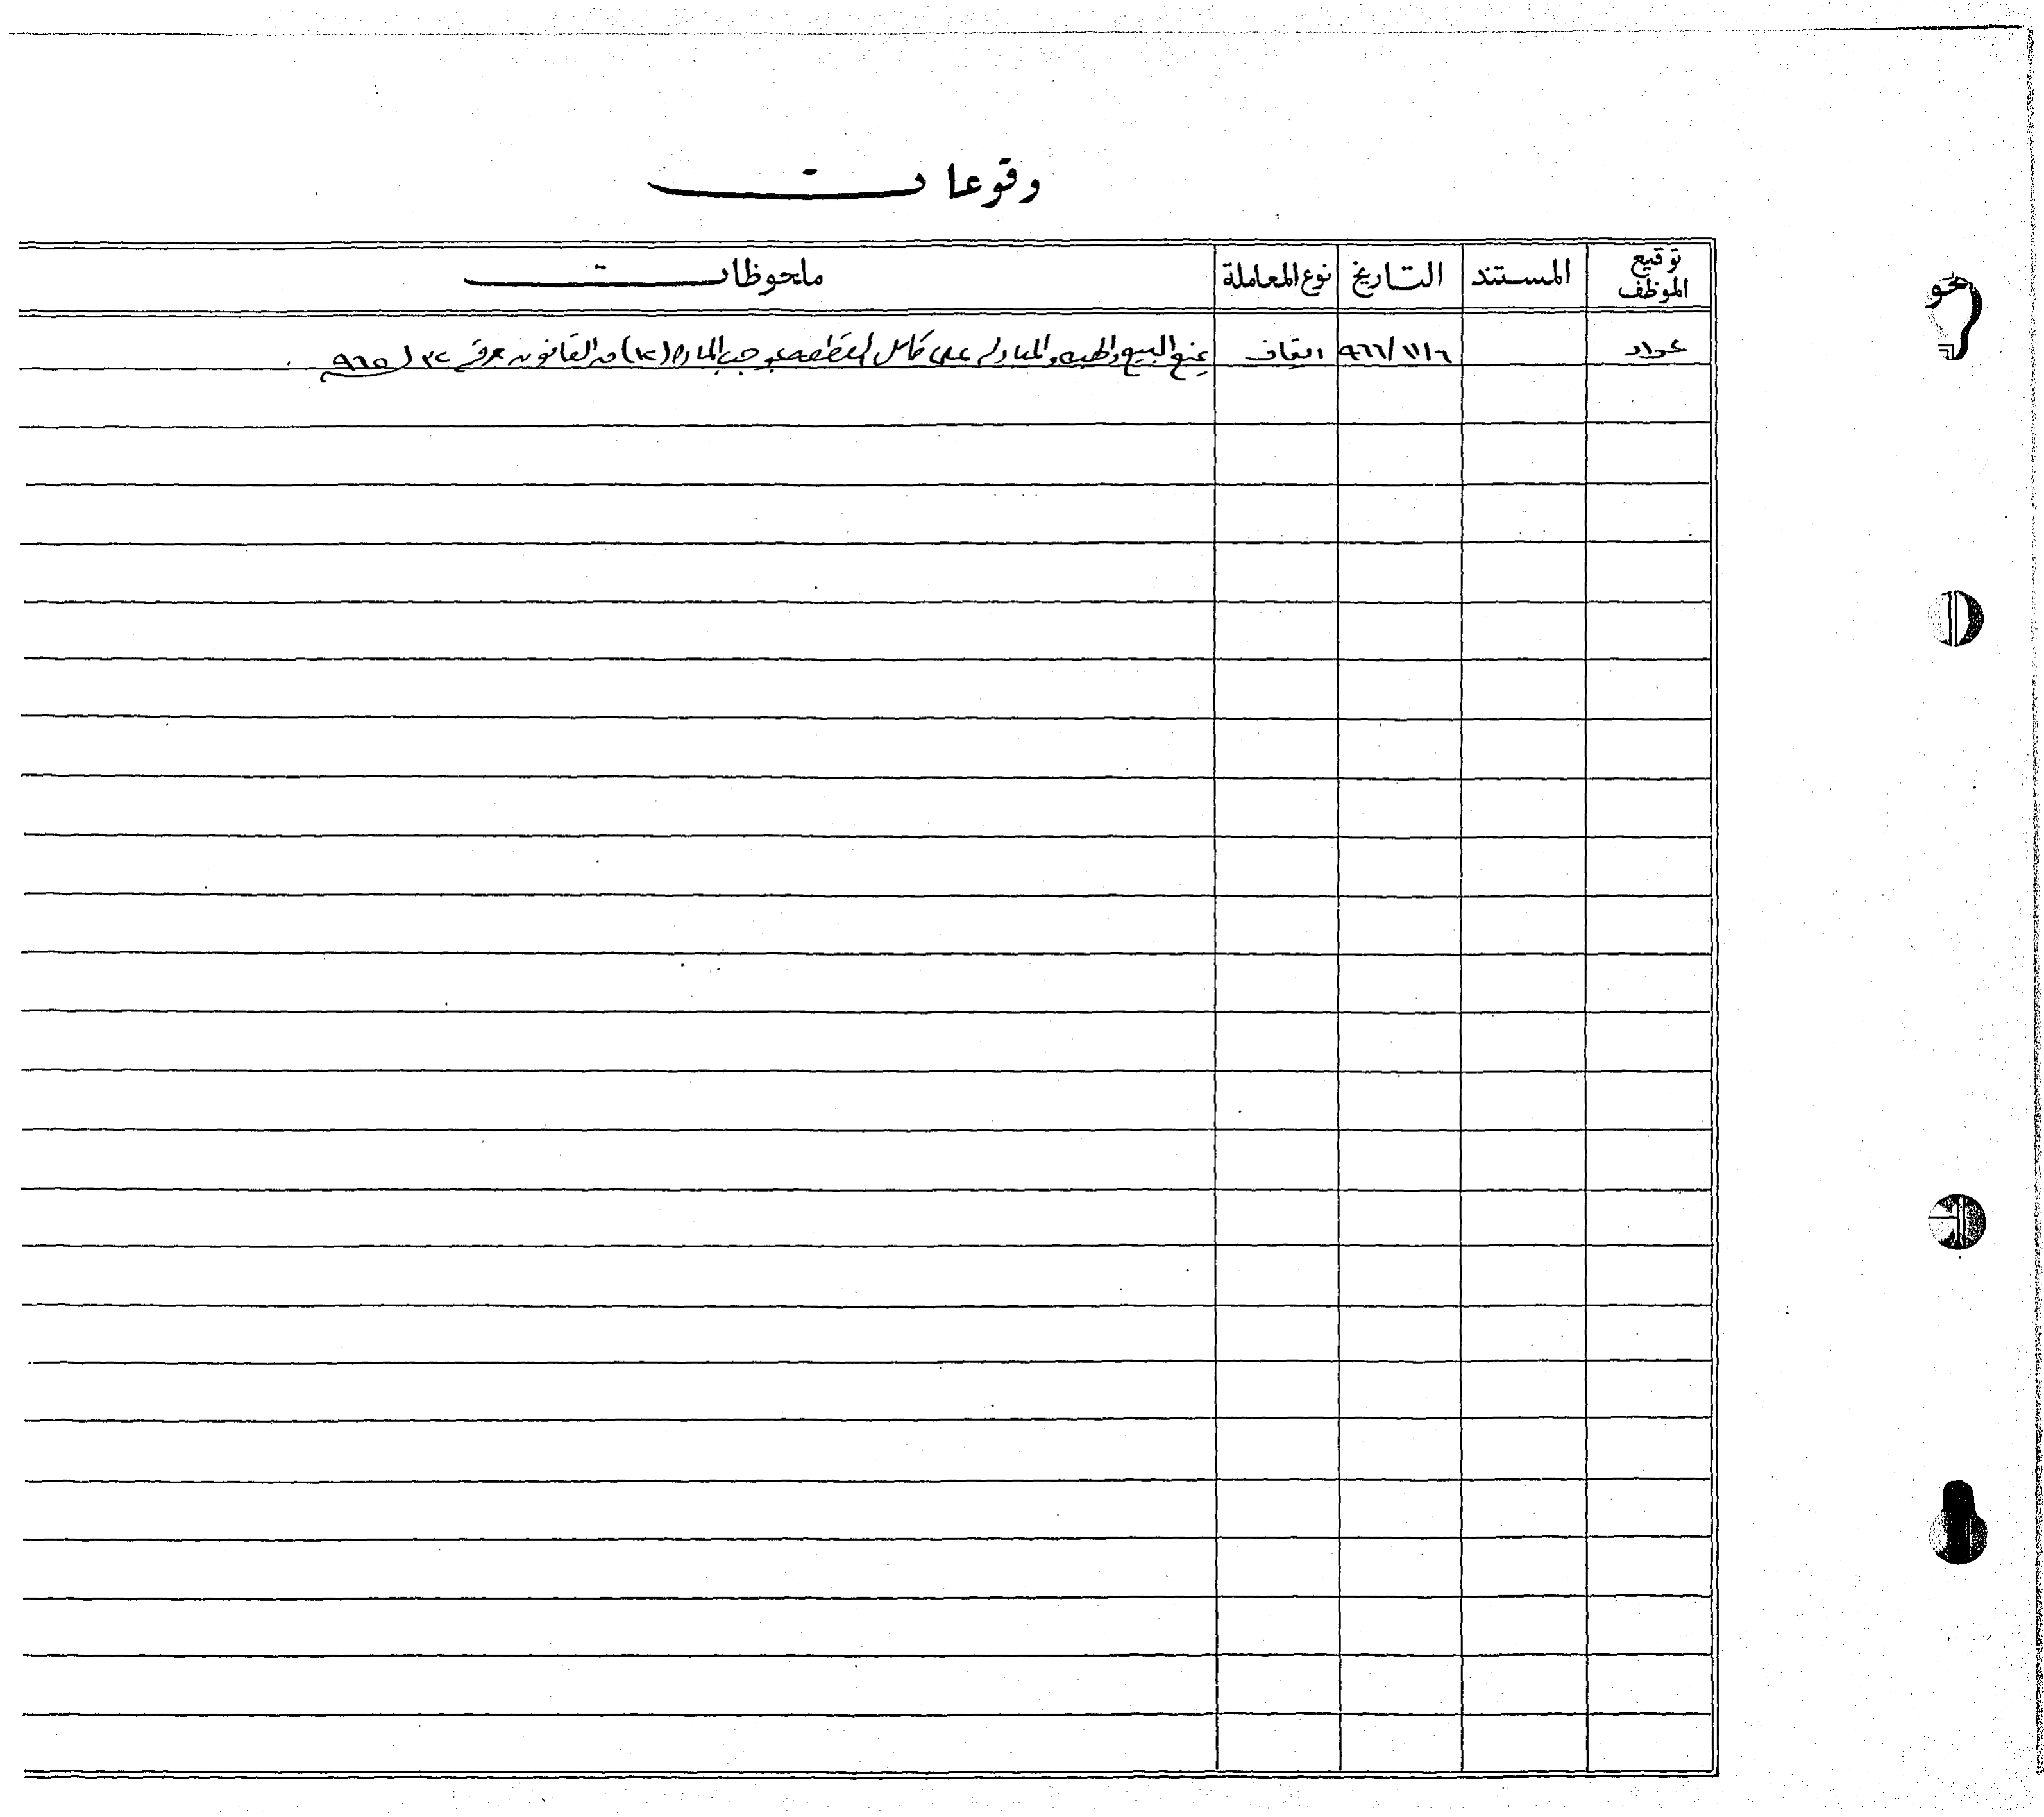 وقوعات
توقيع الموظف | المستند | التاريخ | نوع المعاملة | ملحوظات
عواد | ٩٦٦/١١/٦ | ايقاف | يمنع البيع والهبه والمبادله على كامل القطعه بموجب الماده (١٢) من القانون رقم ٣٢ / ٩٦٥